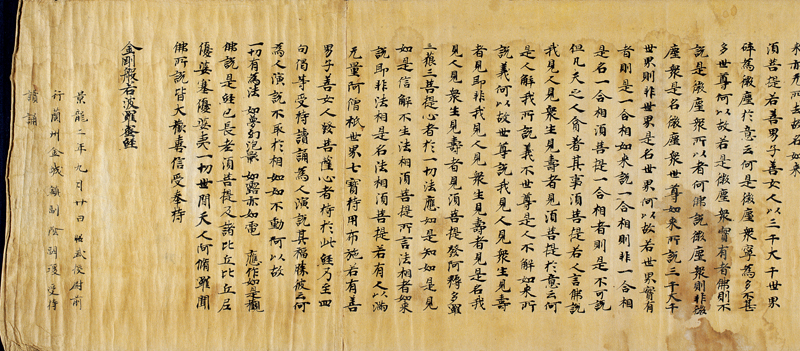 須菩提若善男子善女人以三千大千世界
碎為微塵於意云何是微塵衆寧為多不甚
多世尊何以故若是微塵衆實有者佛則不
說是微塵衆所以者何佛說微塵衆則非微
塵衆是名微塵衆世尊如來所說三千大千
世界則非世界是名世界何以故若世界實有
者則是一合相如來說一合相則非一合相
是名一合相須菩提一合相者則是不可說
但凡夫之人貪着其事須菩提若人言佛說
我見人見衆生見壽者見須菩提於意云何
是人解我所說義不世尊是人不解如來所
說義何以故世尊說我見人見衆生見壽
者見即非我見人見衆生見壽者見是名我
見人見衆生見壽者見須菩提發阿耨多羅
三藐三菩提心者於一切法應如是知如是見
如是信解不生法相須菩提所言法相者如來
說即非法相是名法相須菩提若有人以滿
无量阿僧祇世界七寶持用布施若有善
男子善女人發菩薩心者持於此經乃至四
句偈等受持讀誦為人演說其福勝彼云何
為人演說不取於相如如不動何以故
一切有為法 如夢幻泡影 如露亦如電 應作如是觀
佛說是經已長老須菩提及諸比丘比丘尼
優婆塞優婆夷一切世間天人阿脩羅聞
佛所說皆大歡喜信受奉持
金剛般若波羅蜜經
景龍二年九月廿日昭武校尉前
行蘭州金城鎮副陰嗣瑗受持
讀誦